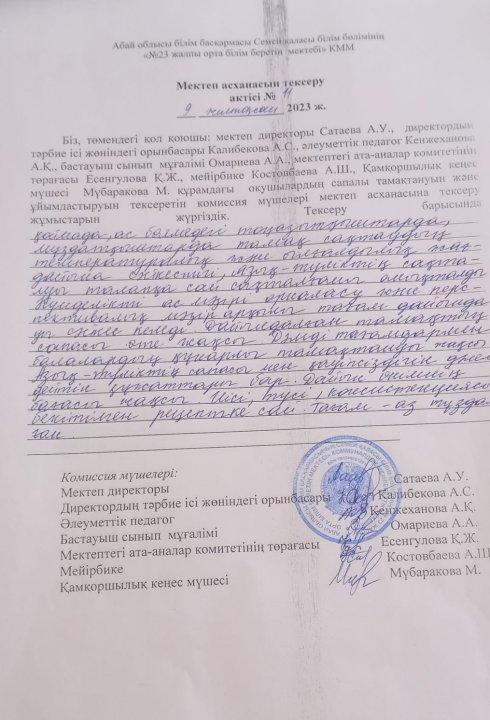 Абай облысы білім басқармасы Семей қаласы білім бөлімінің
«№23 жалпы орта білім беретін мектебі» КММ
Мектеп асханасын тексеру
актісі № 11
9 желтоқсан 2023 ж.
Біз, төмендегі қол қоюшы: мектеп директоры Сатаева А.У., директордың
тәрбие ісі жөніндегі орынбасары Калибекова А.С., әлеуметтік педагог Кенжеханова
А.Қ., бастауыш сынып мұғалімі Омариева А.А., мектептегі ата-аналар комитетінің
төрағасы Есенгулова Қ.Ж., мейірбике Костовбаева А.Ш., Қамқоршылық кеңес
мүшесі Мүбаракова М. құрамдағы оқушылардың сапалы тамақтануын және
ұйымдастыруын тексеретін комиссия мүшелері мектеп асханасына тексеру
жұмыстарын жүргіздік. Тексеру барысында
қоймада, ас бөлмедегі тоңазытқыштарда,
мұздатқыштарда тамақ сақтаудың
температуралық және ылғалдылық жағ-
дайына сәйкестігі, Азық-түліктің сақта-
луы талапқа сай сақталғаны анықталды
Күнделікті ас мәзірі орналасу және перс-
пективалық мәзір арқылы тағам дайында
уы сәйкес келеді. Дайындалған тамақтың
сапасы өте жақсы Дәмді тағамдармен
балалардың құнарлы тамақтануы жақсы
Азық-түліктің сапасы мен қауіпсіздігін дәлел
дейтін құжаттары бар. Дайын өнімнің
бағасы жақсы Иісі, түсі, консистенциясы
бекітілген рецептке сай. Тағам - аз тұзда-
ған.
Комиссия мүшелері:
Мектеп директоры Сатаева А.У.
Директордың тәрбие ісі жөніндегі орынбасары Калибекова А.С.
Әлеуметтік педагог Кенжеханова А.Қ.
Бастауыш сынып мұғалімі Омариева А.А.
Мектептегі ата-аналар комитетінің төрағасы Есенгулова Қ.Ж.
Мейірбике Костовбаева А.Ш
Қамқоршылық кеңес мүшесі Мүбаракова М.